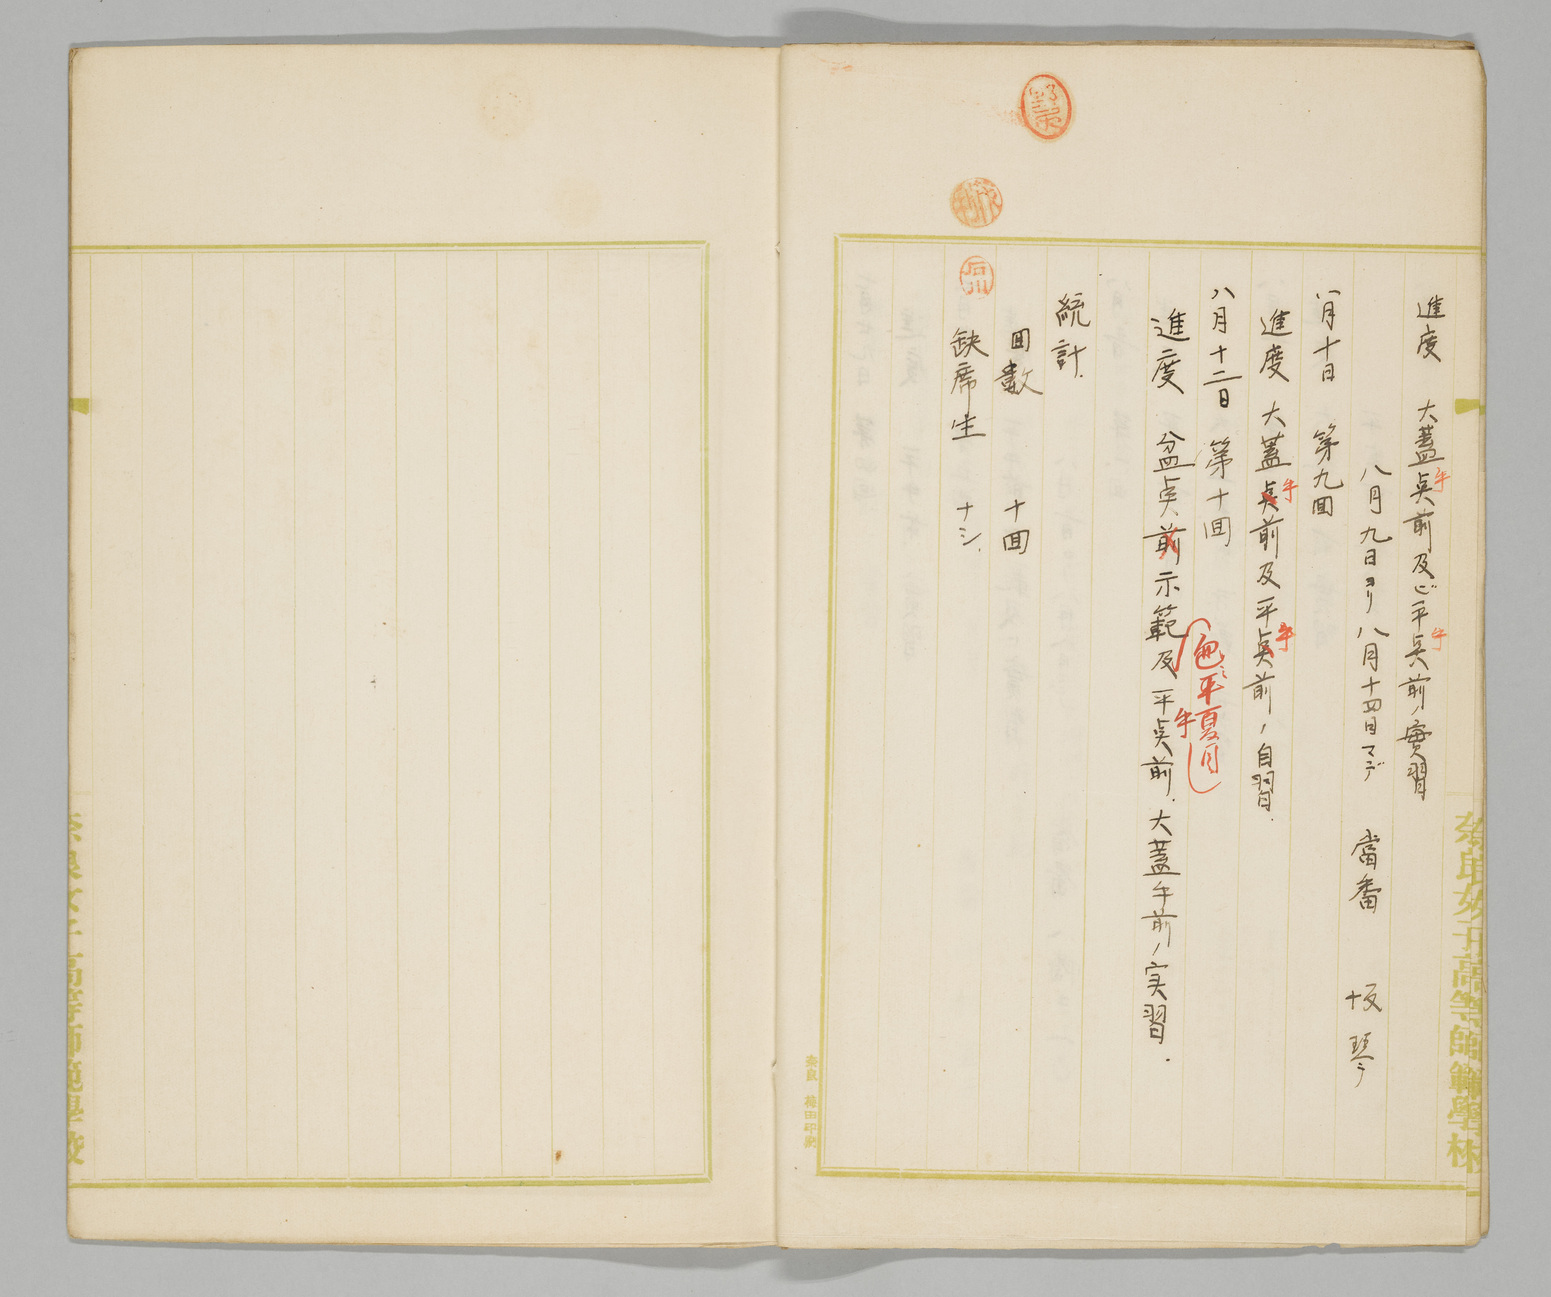 進度 大蓋点前及ビ平点前ノ實習
午
午
八月九日ヨリ八月十四日マデ 當番 坂 琴
八月十日 第九回
進度 大蓋点前及平点前ノ自習.
午
午
八月十二日 第十回
進度 盆点前示範及平点前.大蓋午前ノ実習.
午
平夏目
統計.
回数 十回
缺席生 ナシ.
石川
奈良女子高等師範學校
奈良 梅田印刷
奈良女子高等師範學校